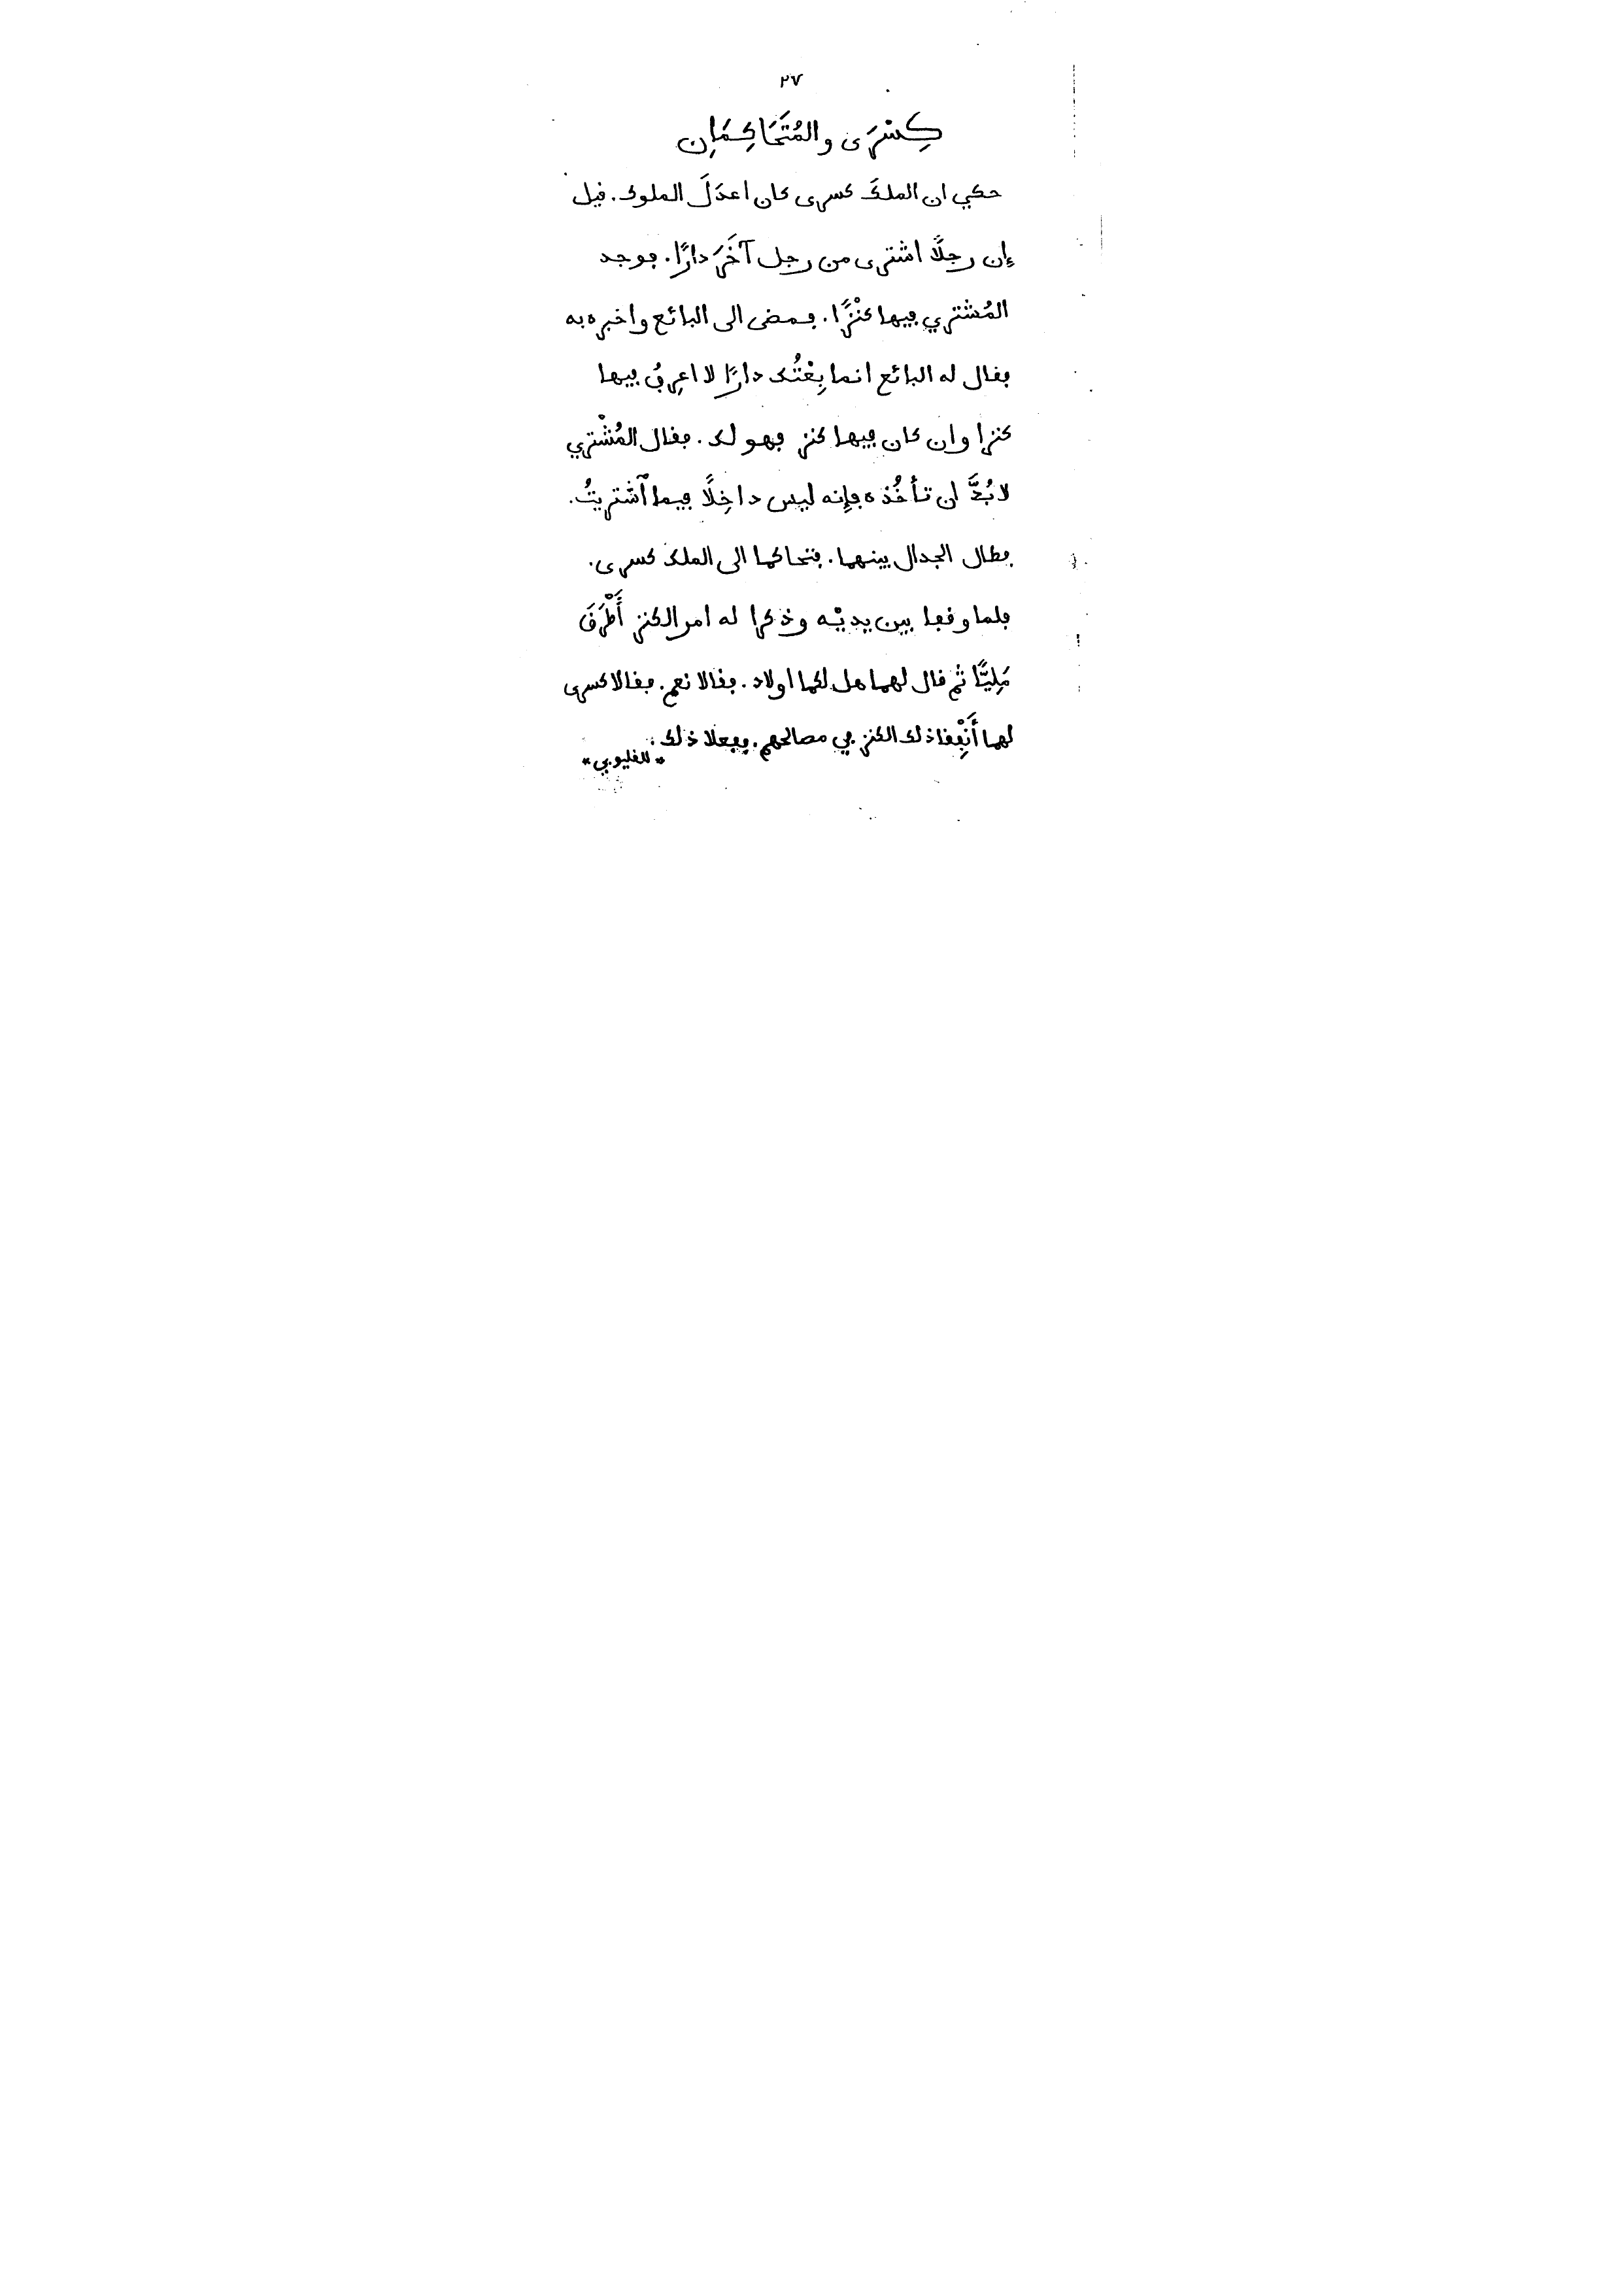 ٢٧
كِسْرَى والمُتَحَاكِمَانِ
حكي ان الملكَ كسرى كان اعدَلَ الملوك. قيل
إن رجلًا اشترى من رجل آخَرَ دارًا. فوجد
المُشتري فيها كنْزًا. فمضى الى البائع واخبره به
فقال له البائع انما بِعْتُك دارًا لا اعرِفُ فيها
كنزا وان كان فيها كنز فهو لك. فقال المُشْتري
لا بُدَّ ان تأخُذه فإنه ليس داخِلًا فيما ٱشتريتُ.
فطال الجدال بينهما. فتحاكما الى الملك كسرى.
فلما وقفا بين يديْه وذكرا له امر الكنز أَطْرَقَ
مَلِيًّا ثم قال لهما هل لكما اولاد. فقالا نعم. فقالا كسرى
لهما أَنْفِقا ذلك الكنز في مصالحهم. ففعلا ذلك.
* للقليوبي *